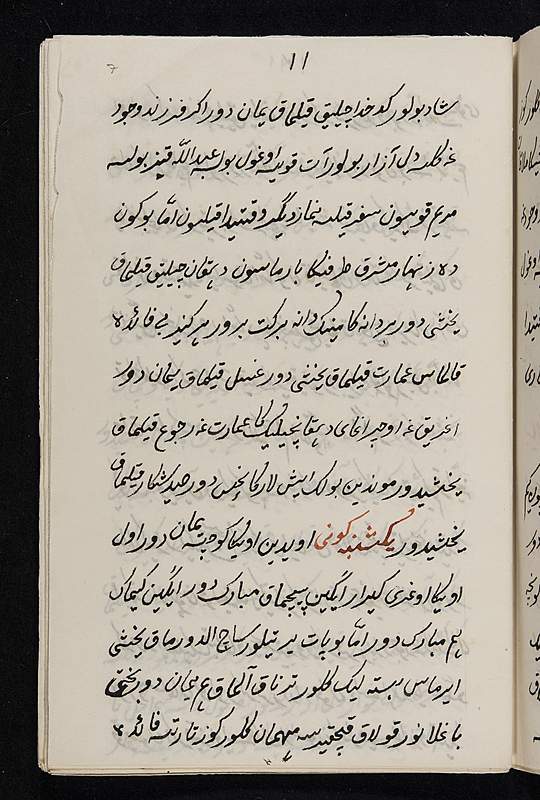 ۱۱
شاد بولور کدخداچیلیق قیلماق یمان دور اکر فرزند وجود
غه کلسه دل آزار بولور آت قویسه اوغول بولسه عبدالله قیز بولسه
مریم قویسون سفر قیلسه نماز دیگر وقتیدا قیلسون اما بو کون
ده زنهار مشرق طرفیکا بارماسون دهقان چیلیق قیلماق
یخشی دور بردانه کا مینک دانه برکت برور هرکیز بی فائده
قالماس عمارت قیلماق یخشی دور غسل قیلماق یمان دور
اغریق غه اوچراغای دهقانچیلیک کا عمارت غه رجوع قیلماق
یخشیدور موندین بولک ایش لارکا نحس دور صید شکار قیلماق
یخشیدور یکشنبه کونی اویدین اویکا کوچسه یمان دور اول
اویکا اوغری کیرار ایکین پیچماق مبارک دور ایکین کیماک
هم مبارک دور اما بویات یرتیلور ساچ الدورماق یخشی
ایرماس خسته لیک کلور ترناق آلماق هم یمان دور بختی
باغلانور قولاق قیچقیرسه مهمان کلور کوز تارتسه فائده